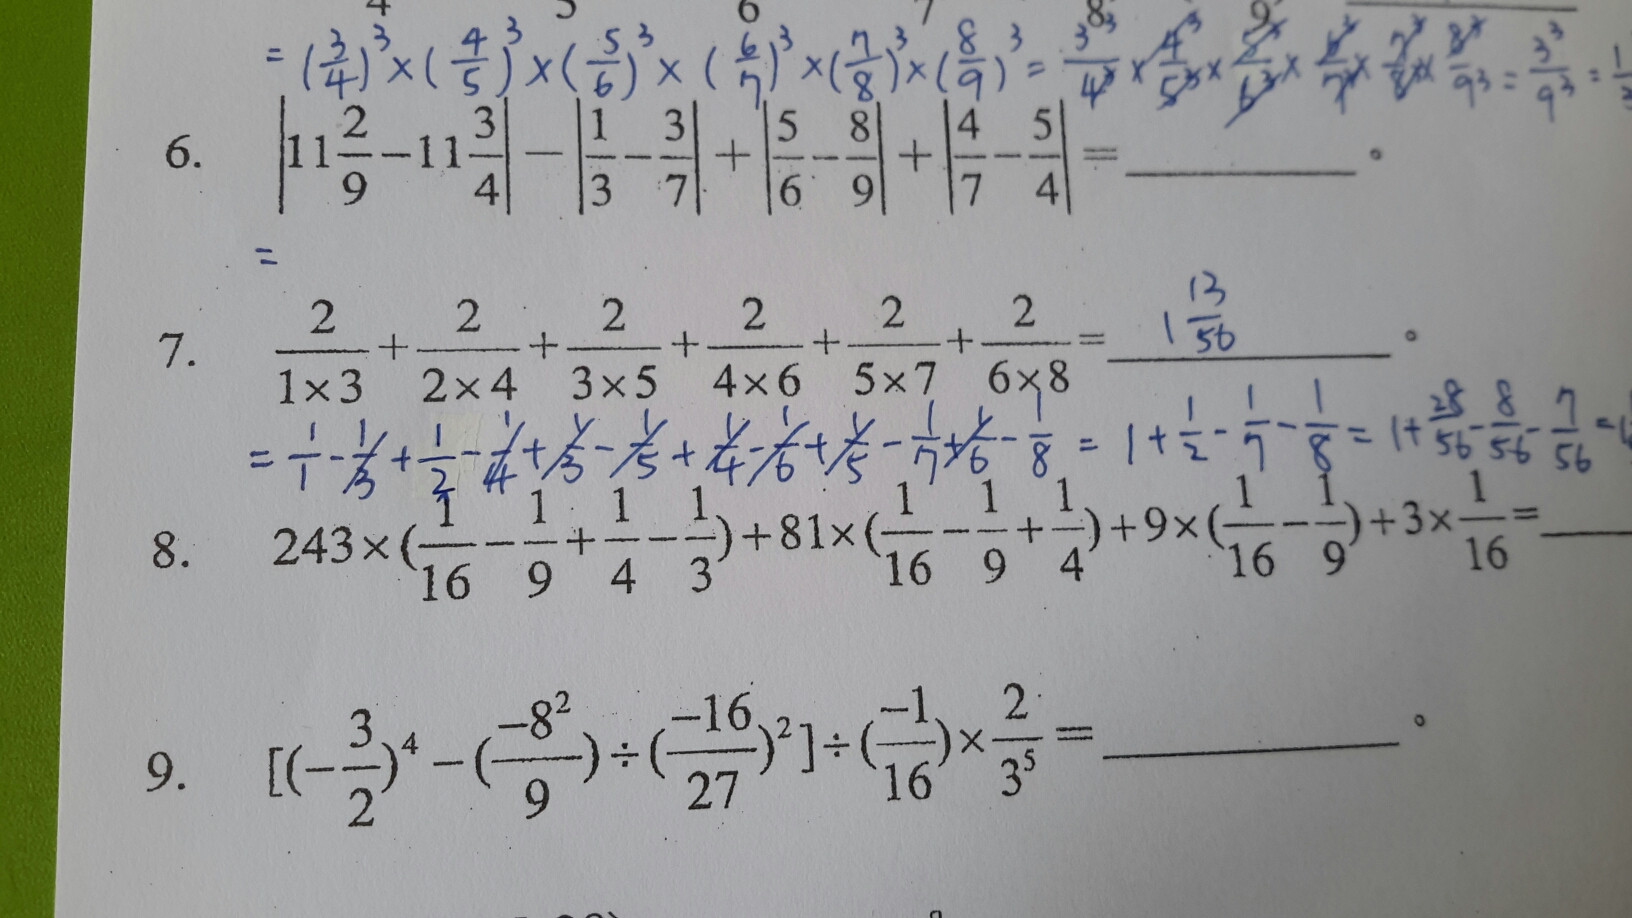 = (3/4)³×(4/5)³×(5/6)³×(6/7)³×(7/8)³×(8/9)³= 3³/4³×4³/5³×5³/6³×6³/7³×7³/8³×8³/9³=3³/9³=
6. |11 2/9−11 3/4|−|1/3−3/7|+|5/6−8/9|+|4/7−5/4|=________。
=
7. 2/(1×3)+2/(2×4)+2/(3×5)+2/(4×6)+2/(5×7)+2/(6×8)= 1 13/56 。
= 1/1−1/3+1/2−1/4+1/3−1/5+1/4−1/6+1/5−1/7+1/6−1/8 = 1+1/2−1/7−1/8=1+28/56−8/56−7/56=
8. 243×(1/16−1/9+1/4−1/3)+81×(1/16−1/9+1/4)+9×(1/16−1/9)+3×1/16=____
9. [(−3/2)⁴−(−8²/9)÷(−16/27)²]÷(−1/16)×2/3⁵=________。